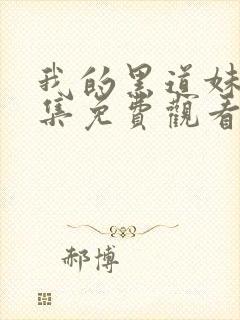 我的黑道妹
集免費觀看
郝博